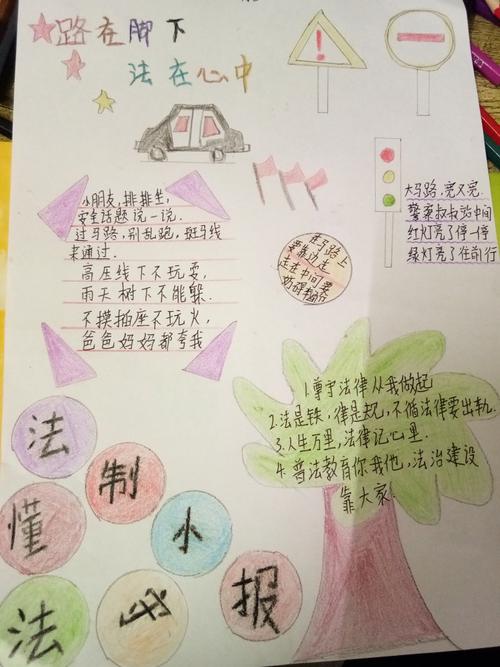 路在脚下
法在心中
小朋友,排排坐,
安全话题说一说.
过马路,别乱跑,斑马线
来通过.
高压线下不玩耍,
雨天树下不能躲.
不摸插座不玩火,
爸爸妈妈都夸我
路上
要靠边走
走在中间要
大马路,宽又宽.
警察叔叔站中间
红灯亮了停一停
绿灯亮了在前行
1.尊守法律从我做起
2.法是铁,律是规,不循法律要出轨.
3.人生万里,法律记心里.
4.普法教育你我他,法治建设
靠大家.
法
制
懂
小
法
必
报